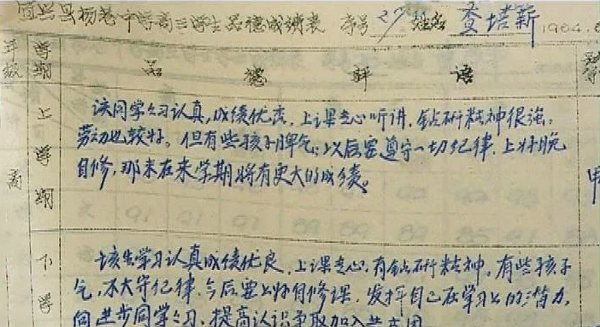 宜兴县杨巷中学高三学生品德成绩表 序号 27 姓名 查培新 1964.
年级 学期 品 德 评 语
上学期 该同学学习认真,成绩优秀,上课专心听讲,钻研精神很强,
劳动也较好。但有些孩子脾气,以后要遵守一切纪律,上好晚
自修,那末在来学期将有更大的成绩。
高
甲
下学 该生学习认真成绩优良,上课专心,有钻研精神,有些孩子
气,不大守纪律,今后要上好自修课,发挥自己在学习上的潜力,
向进步同学学习,提高认识争取加入共青团